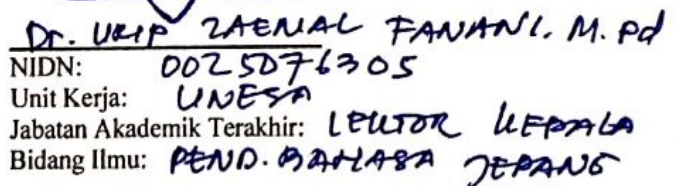 Dr. URIP ZAENAL FANANI. M. Pd
NIDN: 0025076305
Unit Kerja: UNESA
Jabatan Akademik Terakhir: LEKTOR KEPALA
Bidang Ilmu: PEND. BAHASA JEPANG